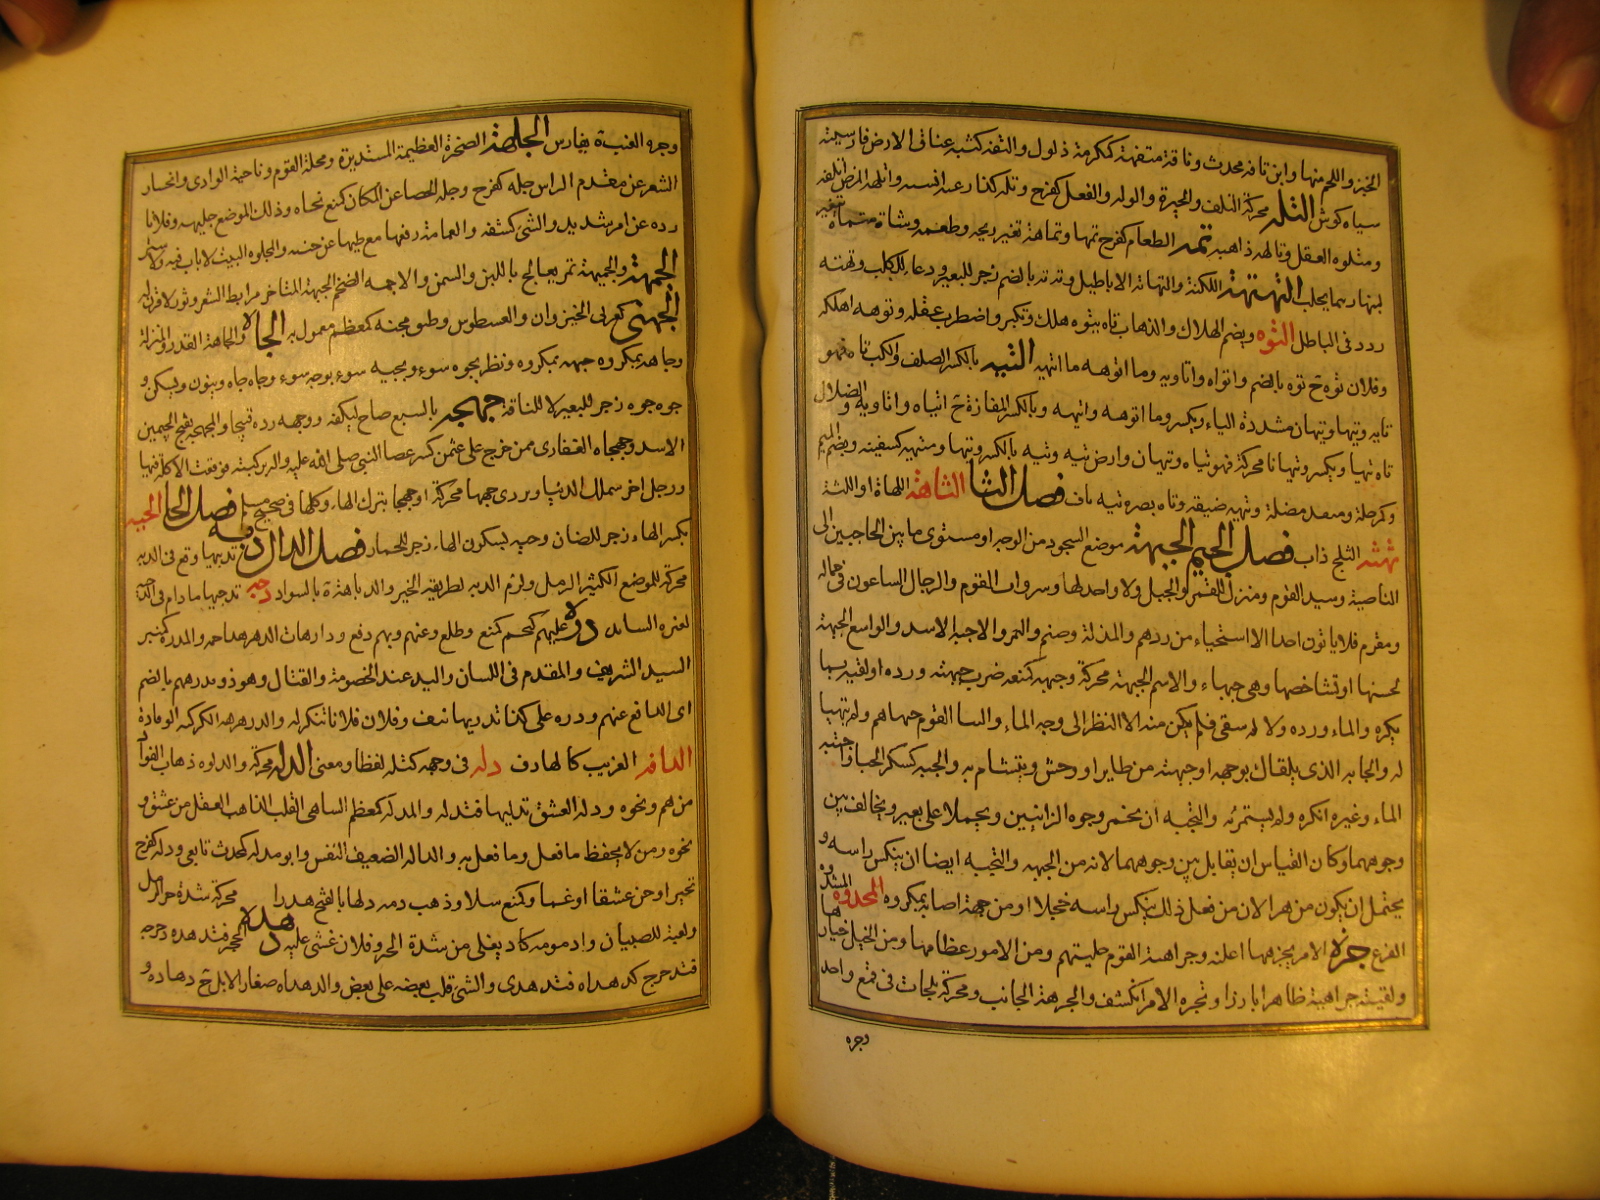 الخبز واللحم منها وابن تافه محدث وناقة متفهة ككرمة ذلول والتفه كثبه عناق الارض فارسيته
سياه كوش التله محركة التلف والحيرة والوله والفعل كفرح وتله كذا وعنه انسيه واتلهه المرض اتلفه
ومثلوه العقل وتالهه ذاهبه تمه الطعام كفرح تمها وتماهة تغير ريحه وطعمه وشاة متماه يتغير
لبنها ريثما يحلب التهتهة اللكنة والتهاته الاباطيل وته ته بالضم زجر للبعير ودعاء للكلب وتهته
ردد فى الباطل التوه ويضم الهلاك والذهاب تاه يتوه هلك وتكبر واضطرب عقله وتوهه اهلكه
وفلان توه ج توه بالضم واتواه واتاويه وما اتوهه ما اتيهه التيه بالكسر الصلف والكبر تاه فهو
تايه وتياه وتيهان مشددة الياء ويكسر وما اتوهه واتيهه وبالكسر المفازة ج اتياه واتاويه والضلال
تاه تيها ويكسر وتيهانا محركة فهو تياه وتيهان وارض تيه وتيه بالكسر وتيها ومتيهه كسفينه ويضم الميم
وكمرحلة ومقعد مضلة وتيه ضيقه وتاه بصره تيه تاف فصل الثا الثاهة اللهاة او اللثة
ثهثه الثلج ذاب فصل الجيم الجبهة موضع السجود من الوجه او مستوى ما بين الحاجبين الى
الناصية وسيد القوم ومنزل للقمر والخيل ولا واحد لها وسروات القوم والرجال الساعون فى حمالة
ومغرم فلا ياتون احدا الا استحياء من ردهم والمذلة وصنم والقمر والاجبه الاسد والواسع الجبهة
لحسنها او شاخصها وهى جبهاء والاسم الجبهة محركة وجبهه كمنعه ضرب جبهته ورده او لقيه بما
يكره والماء ورده ولا له سقى فلم يكن منه الا النظر الى وجه الماء والشتا القوم جاهم ولم يتهيا
له والجابه الذى يلقاك بوجهه او جبهته من طاير او وحش ويتشام به والجبه كسكر الجبا واجتبه
الماء وغيره انكره ولم يستمرئه والتجبيه ان يحمر وجوه الزانيين ويحملا على بعير ويخالف بين
وجوههما وكان القياس ان يقابل بين وجوههما لانه من الجبهه والتجبيه ايضا ان ينكس راسه و
يحتمل ان يكون من هذا لان من فعل ذلك ينكس راسه خجلا او من جبهه اصابه بمكروه المجدوه المشدوه
الفزع جره الامر تجريها اعلنه وجراهية القوم جلبتهم ومن الامور عظامها ومن الخيل خيارها
ولقيته جراهية ظاهرا بارزا وتجره الامر انكشف والجرهة الجانب ومحركة بلجات فى قمع واحد
وجره
وجره العنبة بفارس الجلهة الصخرة العظيمة المستديرة ومحلة القوم وناحية الوادى وانحسار
الشعر عن مقدم الراس جله كفرح وجله الحصا عن المكان كمنع نحاه وذلك الموضع جليهه وفلانا
رده عن امر شديد والشى كشفه والعمامة رفعها مع طيها عن جبينه والمجلوه البيت لا باب فيه ولا ستر
الجلهة والجليهة تمر يعالج باللبن والسمن والاجله الضخم الجبهة المتاخر منابت الشعر وثور لا قرن له
الجنهى كعربى الخيزران والعسطوس وطبق مجنه كمعظم معمول به الجاه والجاهة القدر والمنزلة
وجاهه بمكروه جبهه بمكروه ونظر بجوه سوء وبجيه سوء بوجه سوء وجاه جاه وينون ويسكن و
جوه جوه زجر للبعير لا للناقة جهجه بالسبع صاح ليكفه ووجهه رده قبيحا والمجهجه بفتح الجيمين
الاسد وجهجاه الغفارى ممن خرج على عثمن كسر عصا النبى صلى الله عليه واله بركبته فوقعت الاكلة فيها
ورجل اخر سيملك الدنيا ويروى جهها محركة او جهجا بترك الهاء وكلها فى صحيح مسلم فصل الحا الحيه
بكسر الهاء زجر للضان وحيه بسكون الهاء زجر للحمار فصل الدال دبه تدبيها وقع فى الدبه
محركة للموضع الكثير الرمل ولزم الدبه لطريقة الخير والدباهة ة بالسواد دجه تدجيها ما دام فى الدجه
لقترة الصايد دره عليهم كمنع هجم وطلع وعنهم وبهم دفع ودارهات الدهر هواجمه والمدره كمنبر
السيد الشريف والمقدم فى اللسان واليد عند الخصومة والقتال وهو ذو تدرههم بالضم
اى الدافع عنهم ودره على كذا تدريها نيف وفلان فلانا تنكر له والدرهرهه الكوكبه الوقادة
الدافه الغريب كالهادف دله فى وجهه كتله لفظا ومعنى الدله محركة والدلوه ذهاب الفواد
من هم ونحوه ودلهه العشق تدليها فتدله والمدله كمعظم الساهى القلب الذاهب العقل من عشق و
نحوه ومن لا يحفظ ما فعل وما فعل به والداله الضعيف النفس وابو مدله كمحدث تابعى ودله كفرح
تحير او جن عشقا او غما وكمنع سلا وذهب دمه دلها بالفتح هدرا دمه محركة شدة حر الرمل
ولعبة للصبيان وادمومه كاد يغلى من شدة الحر وفلان غشى عليه دهده الحجر فتدهده دحرجه
فتدحرج كدهداه فتدهدى والشئ قلب بعضه على بعض والدهداه صغار الابل ج دهاده و